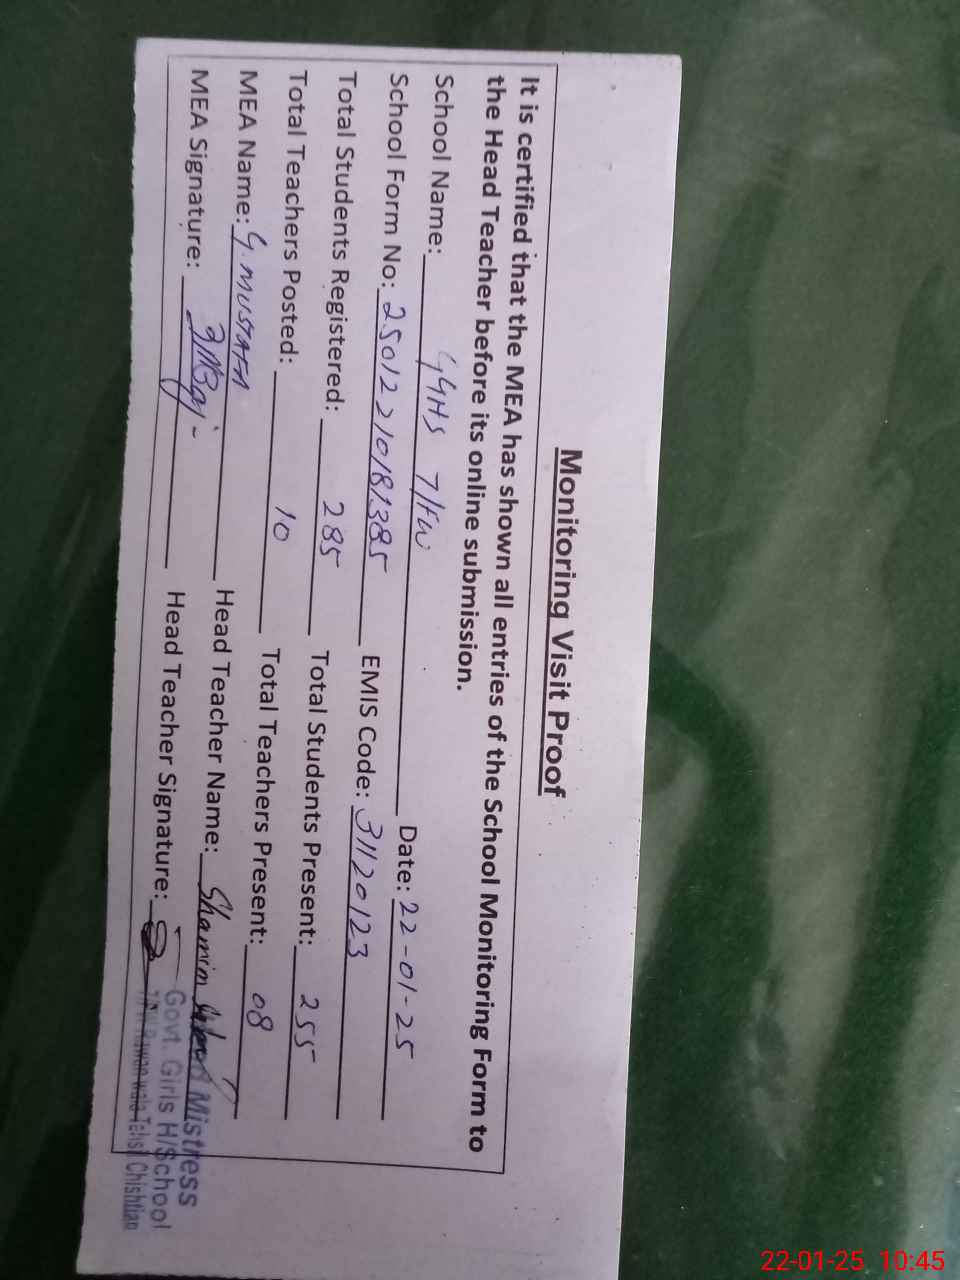 Monitoring Visit Proof
It is certified that the MEA has shown all entries of the School Monitoring Form to
the Head Teacher before its online submission.
School Name: GGHS 7/FW Date: 22-01-25
School Form No: 25012210181385 EMIS Code: 31120123
Total Students Registered: 285 Total Students Present: 255
Total Teachers Posted: 10 Total Teachers Present: 08
MEA Name: G. MUSTAFA Head Teacher Name: Shamim
MEA Signature: Head Teacher Signature:
Mistress
Govt. Girls H/School
Tehsil Chishtian
22-01-25 10:45